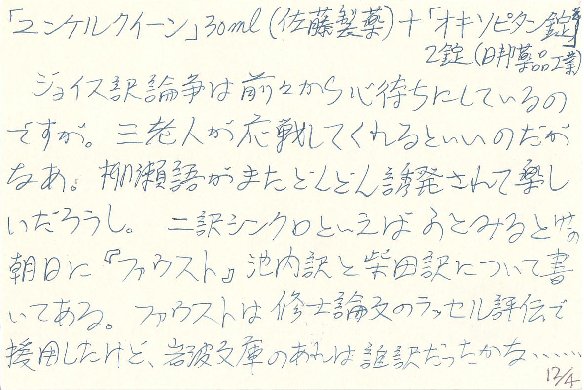 「ユンケルクイーン」30ml(佐藤製薬)+「オキソピタン錠」
2錠(日邦薬品工業)
ジョイス訳論争は前々から心待ちにしているの
ですが。三老人が応戦してくれるといいのだが
なあ。柳瀬語がまたどんどん誘発されて楽し
いだろうし。二訳シンクロといえばふとみるとけさの
朝日に『ファウスト』池内訳と柴田訳について書
いてある。ファウストは修士論文のラッセル評伝で
援用したけど、岩波文庫のあれは誰訳だったかな……
12/4